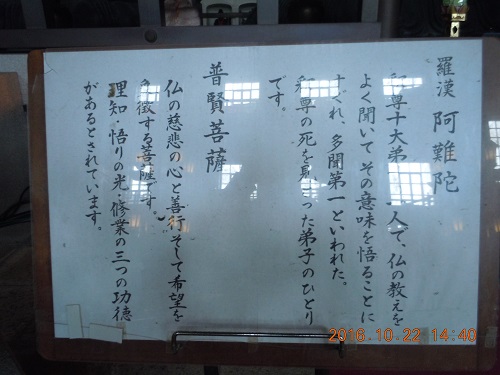 羅漢 阿難陀
釈尊十大弟 人で、仏の教えを
よく聞いてその意味を悟ることに
すぐれ、多聞第一といわれた。
釈尊の死を見 った弟子のひとり
です。
普賢菩薩
仏の慈悲の心と善行そして希望を
象徴する菩薩です。
理知・悟りの光・修業の三つの功徳
があるとされています。
2016.10.22 14:40